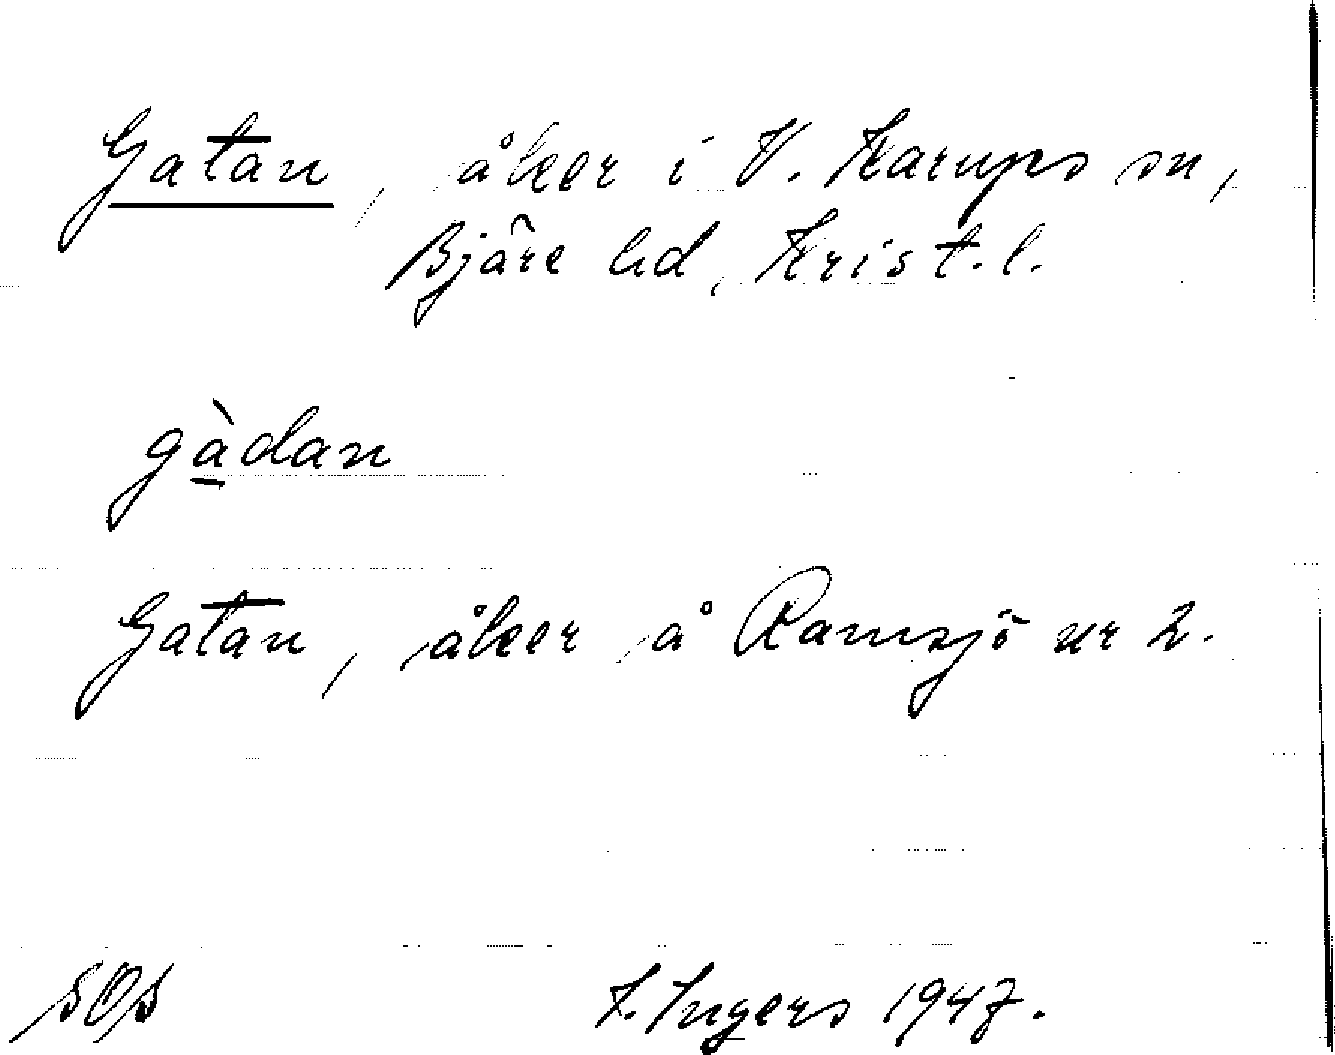 Gatan, åker i V. Karups sn,
Bjäre hd, Krist. l.
gàdan
Gatan, åker å Ramsjö nr 2.
SOS I. Ingers 1947.